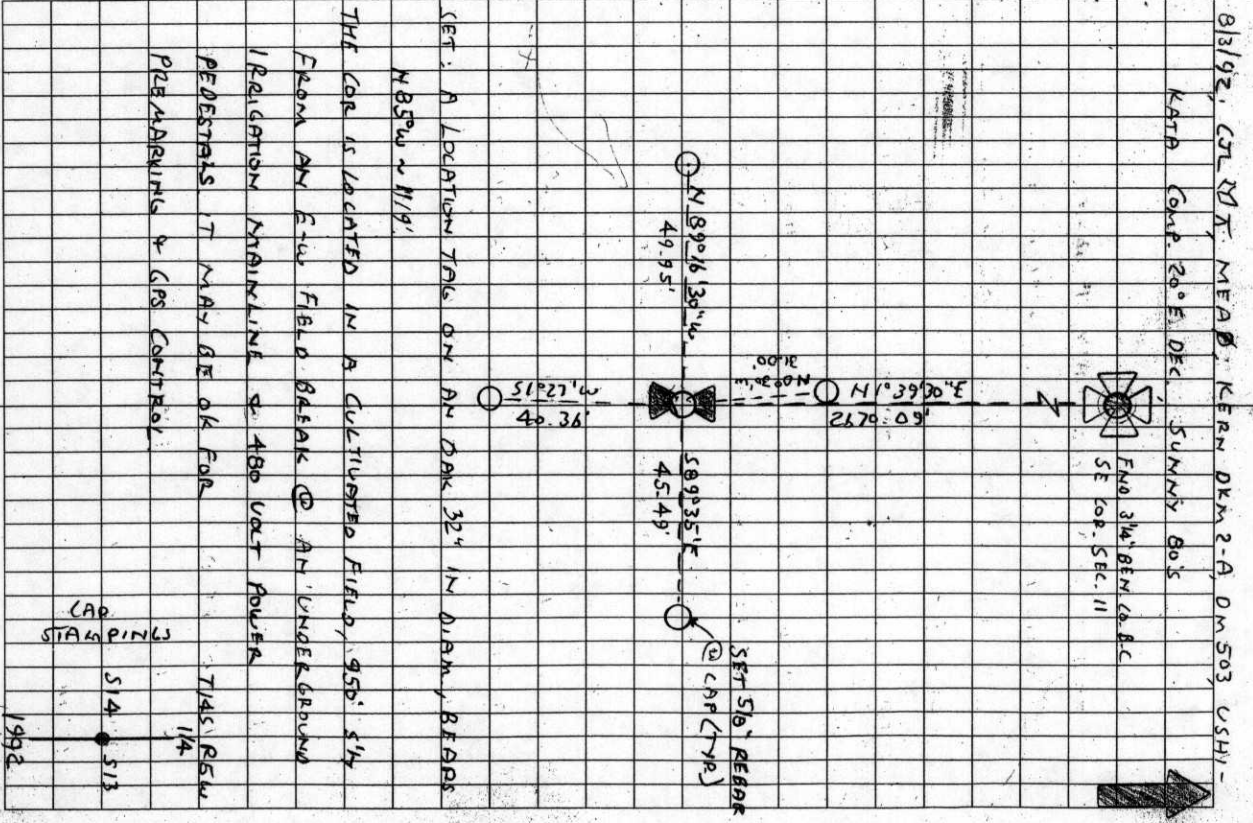 8/3/92, CJL MEAD, KERN DKM 2-A, DM 503, USHI-
KATA COMP. 20° E. DEC. SUNNY 80'S
FND 3 1/4" BEN. CO. B.C
SE COR. SEC. 11
N
N 1° 39' 30" E
2670.09'
N 0° 30' W
31.00'
N 89° 16' 30" W
49.95'
S 89° 35' E
45.49'
SET 5/8" REBAR
W CAP (TYP.)
S 1° 27' W
40.36'
SET: A LOCATION TAG ON AN OAK 32" IN DIAM, BEARS
N 85° W ~ 1119'
THE COR IS LOCATED IN A CULTIVATED FIELD, 950' S'LY
FROM AN E-W FIELD BREAK W AN UNDERGROUND
IRRIGATION MAINLINE & 480 VOLT POWER
PEDESTALS IT MAY BE OK FOR
PREMARKING & GPS CONTROL.
CAP
STAMPINGS
T14S R5W
1/4
S14 S13
1992